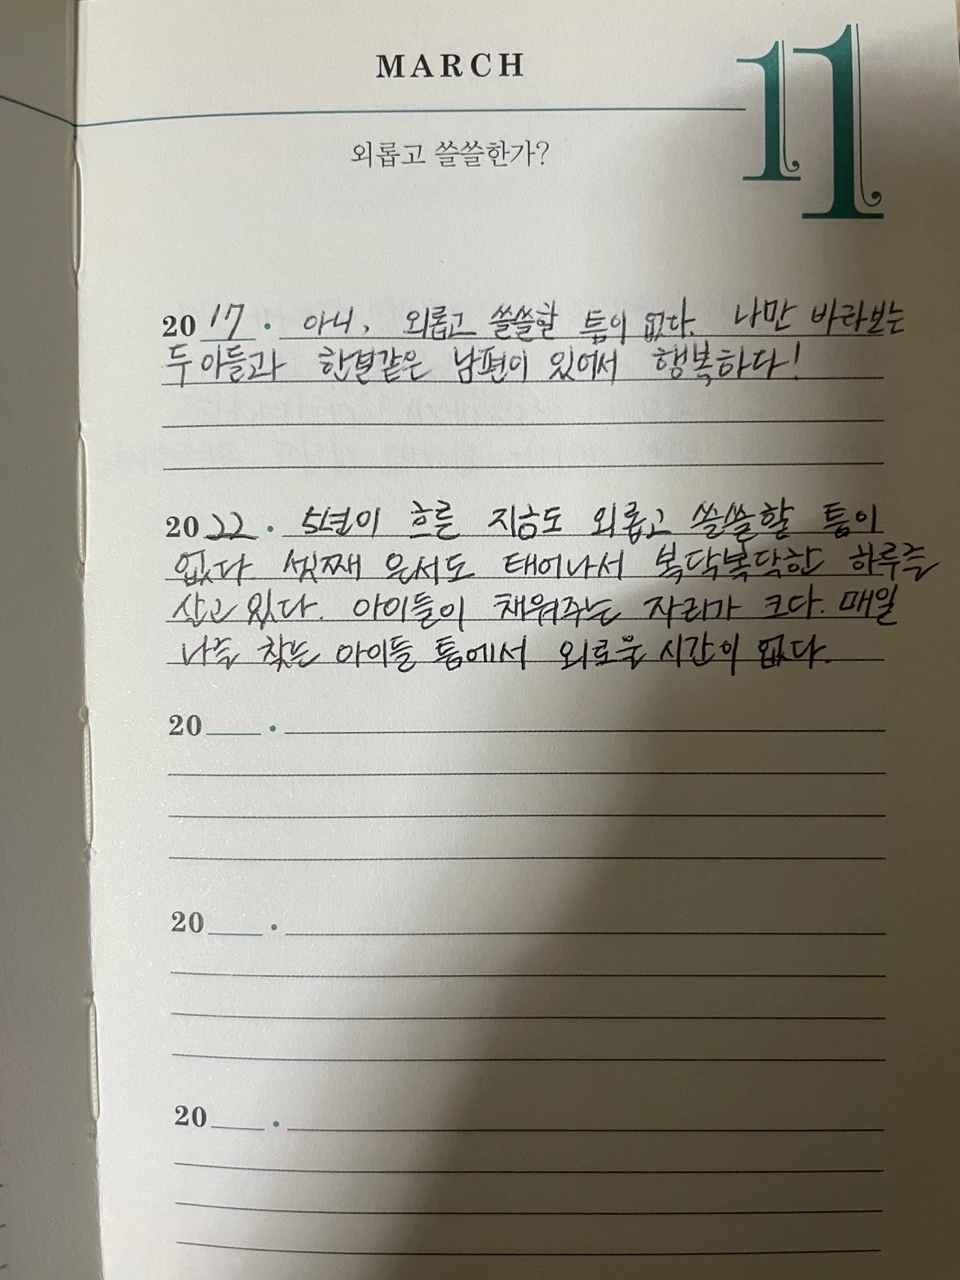 MARCH
11
외롭고 쓸쓸한가?
20 17 · 아니, 외롭고 쓸쓸할 틈이 없다. 나만 바라보는
두 아들과 한결같은 남편이 있어서 행복하다!
20 22 · 5년이 흐른 지금도 외롭고 쓸쓸할 틈이
없다. 셋째 은서도 태어나서 복닥복닥한 하루를
살고 있다. 아이들이 채워주는 자리가 크다. 매일
나를 찾는 아이들 틈에서 외로울 시간이 없다.
20 ·
20 ·
20 ·